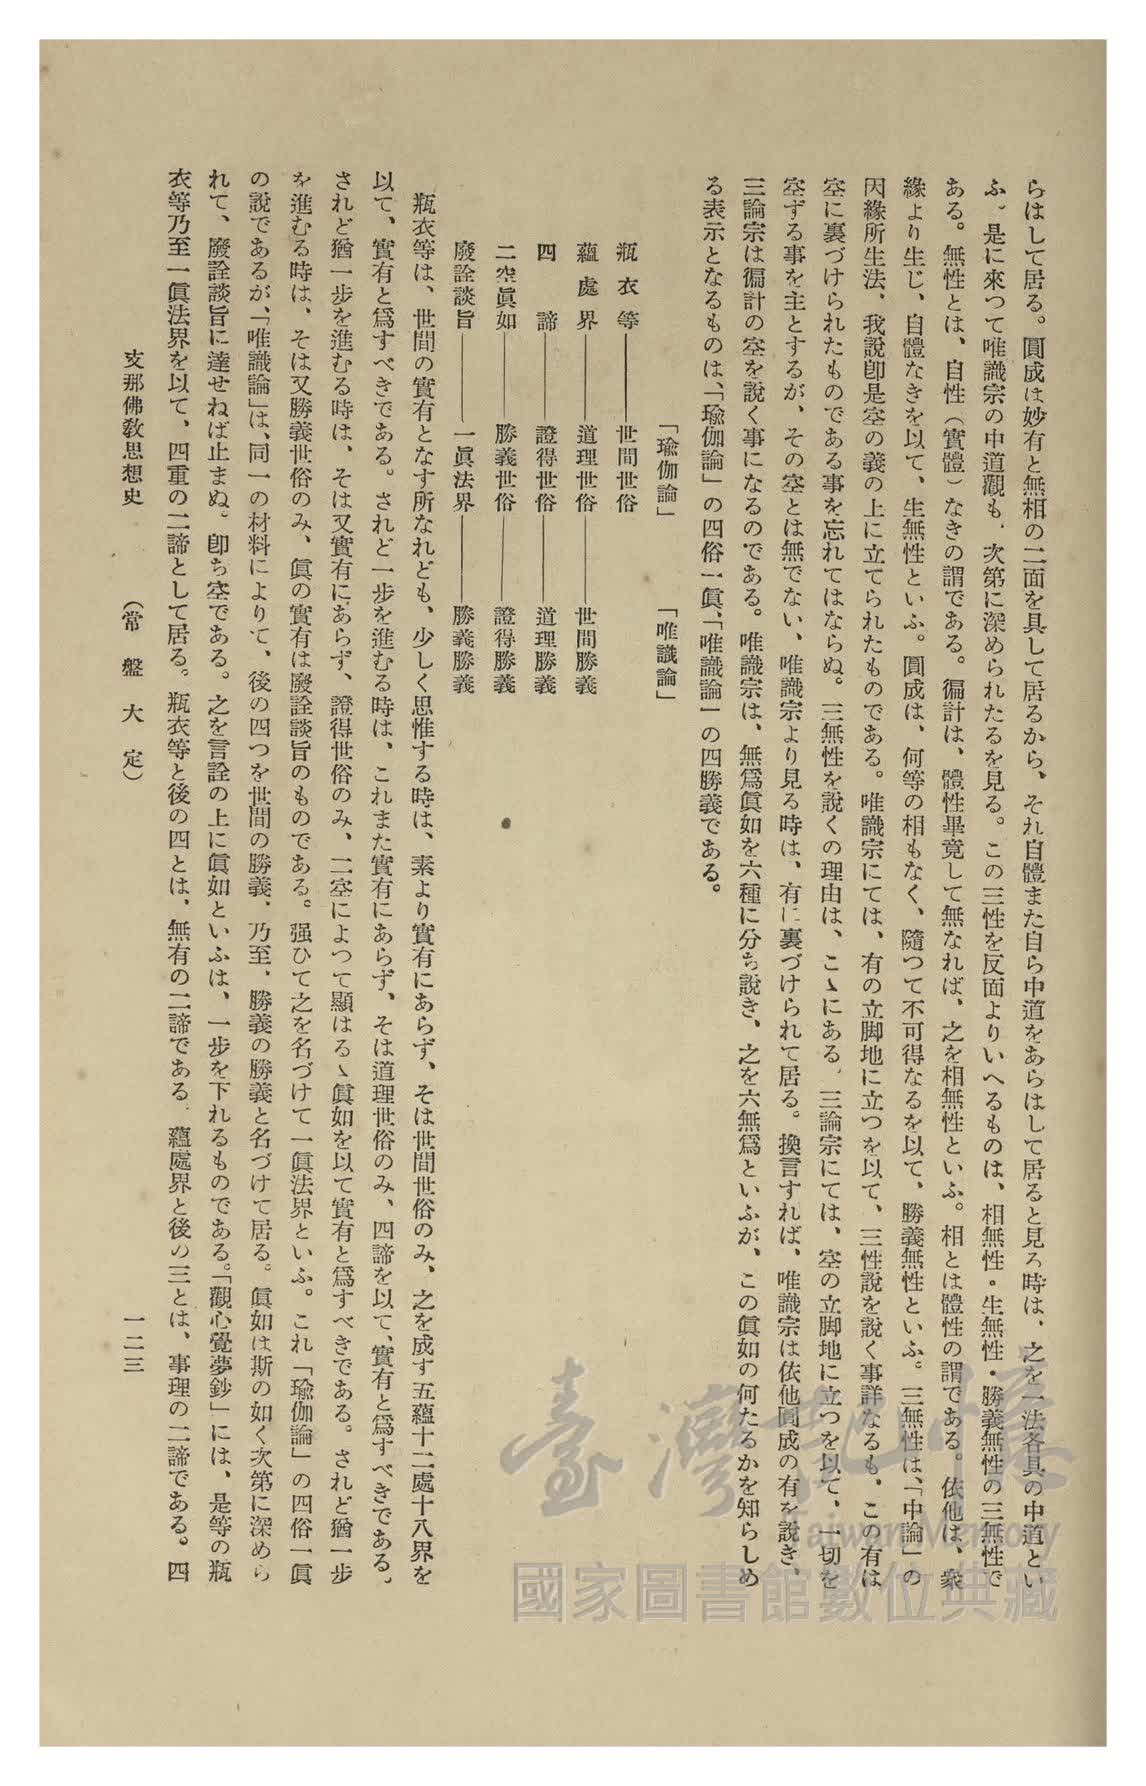 らはして居る。圓成は妙有と無相の二面を具して居るから、それ自體また自ら中道をあらはして居ると見ろ時は、之を一法各具の中道とい
ふ。是に來つて唯識宗の中道觀も、次第に深められたるを見る。この三性を反面よりいへるものは、相無性・生無性・勝義無性の三無性で
ある。無性とは、自性（實體）なきの謂である。徧計は、體性畢竟して無なれば、之を相無性といふ。相とは體性の謂である。依他は、衆
緣より生じ、自體なきを以て、生無性といふ。圓成は、何等の相もなく、隨つて不可得なるを以て、勝義無性といふ。三無性は、「中論」の
因緣所生法、我說卽是空の義の上に立てられたものである。唯識宗にては、有の立脚地に立つを以て、三性說を說く事詳なるも、この有は
空に裏づけられたものである事を忘れてはならぬ。三無性を說くの理由は、こゝにある。三論宗にては、空の立脚地に立つを以て、一切を
空ずる事を主とするが、その空とは無でない、唯識宗より見る時は、有に裏づけられて居る。換言すれば、唯識宗は依他圓成の有を說き、
三論宗は徧計の空を說く事になるのである。唯識宗は、無爲眞如を六種に分ち說き、之を六無爲といふが、この眞如の何たるかを知らしめ
る表示となるものは、「瑜伽論」の四俗一眞、「唯識論」の四勝義である。
「瑜伽論」 「唯識論」
瓶衣等――世間世俗
蘊處界――道理世俗――世間勝義
四諦――證得世俗――道理勝義
二空眞如――勝義世俗――證得勝義
廢詮談旨――一眞法界――勝義勝義
瓶衣等は、世間の實有となす所なれども、少しく思惟する時は、素より實有にあらず、そは世間世俗のみ、之を成す五蘊十二處十八界を
以て、實有と爲すべきである。されど一步を進むる時は、これまた實有にあらず、そは道理世俗のみ、四諦を以て、實有と爲すべきである。
されど猶一步を進むる時は、そは又實有にあらず、證得世俗のみ、二空によつて顯はるゝ眞如を以て實有と爲すべきである。されど猶一步
を進むる時は、そは又勝義世俗のみ、眞の實有は廢詮談旨のものである。强ひて之を名づけて一眞法界といふ。これ「瑜伽論」の四俗一眞
の說であるが、「唯識論」は、同一の材料によりて、後の四つを世間の勝義、乃至、勝義の勝義と名づけて居る。眞如は斯の如く次第に深めら
れて、廢詮談旨に達せねば止まぬ。卽ち空である。之を言詮の上に眞如といふは、一步を下れるものである。「觀心覺夢鈔」には、是等の瓶
衣等乃至一眞法界を以て、四重の二諦として居る。瓶衣等と後の四とは、無有の二諦である。蘊處界と後の三とは、事理の二諦である。四
支那佛敎思想史 （常盤大定） 一二三
臺灣記憶
Taiwan Memory
國家圖書館數位典藏